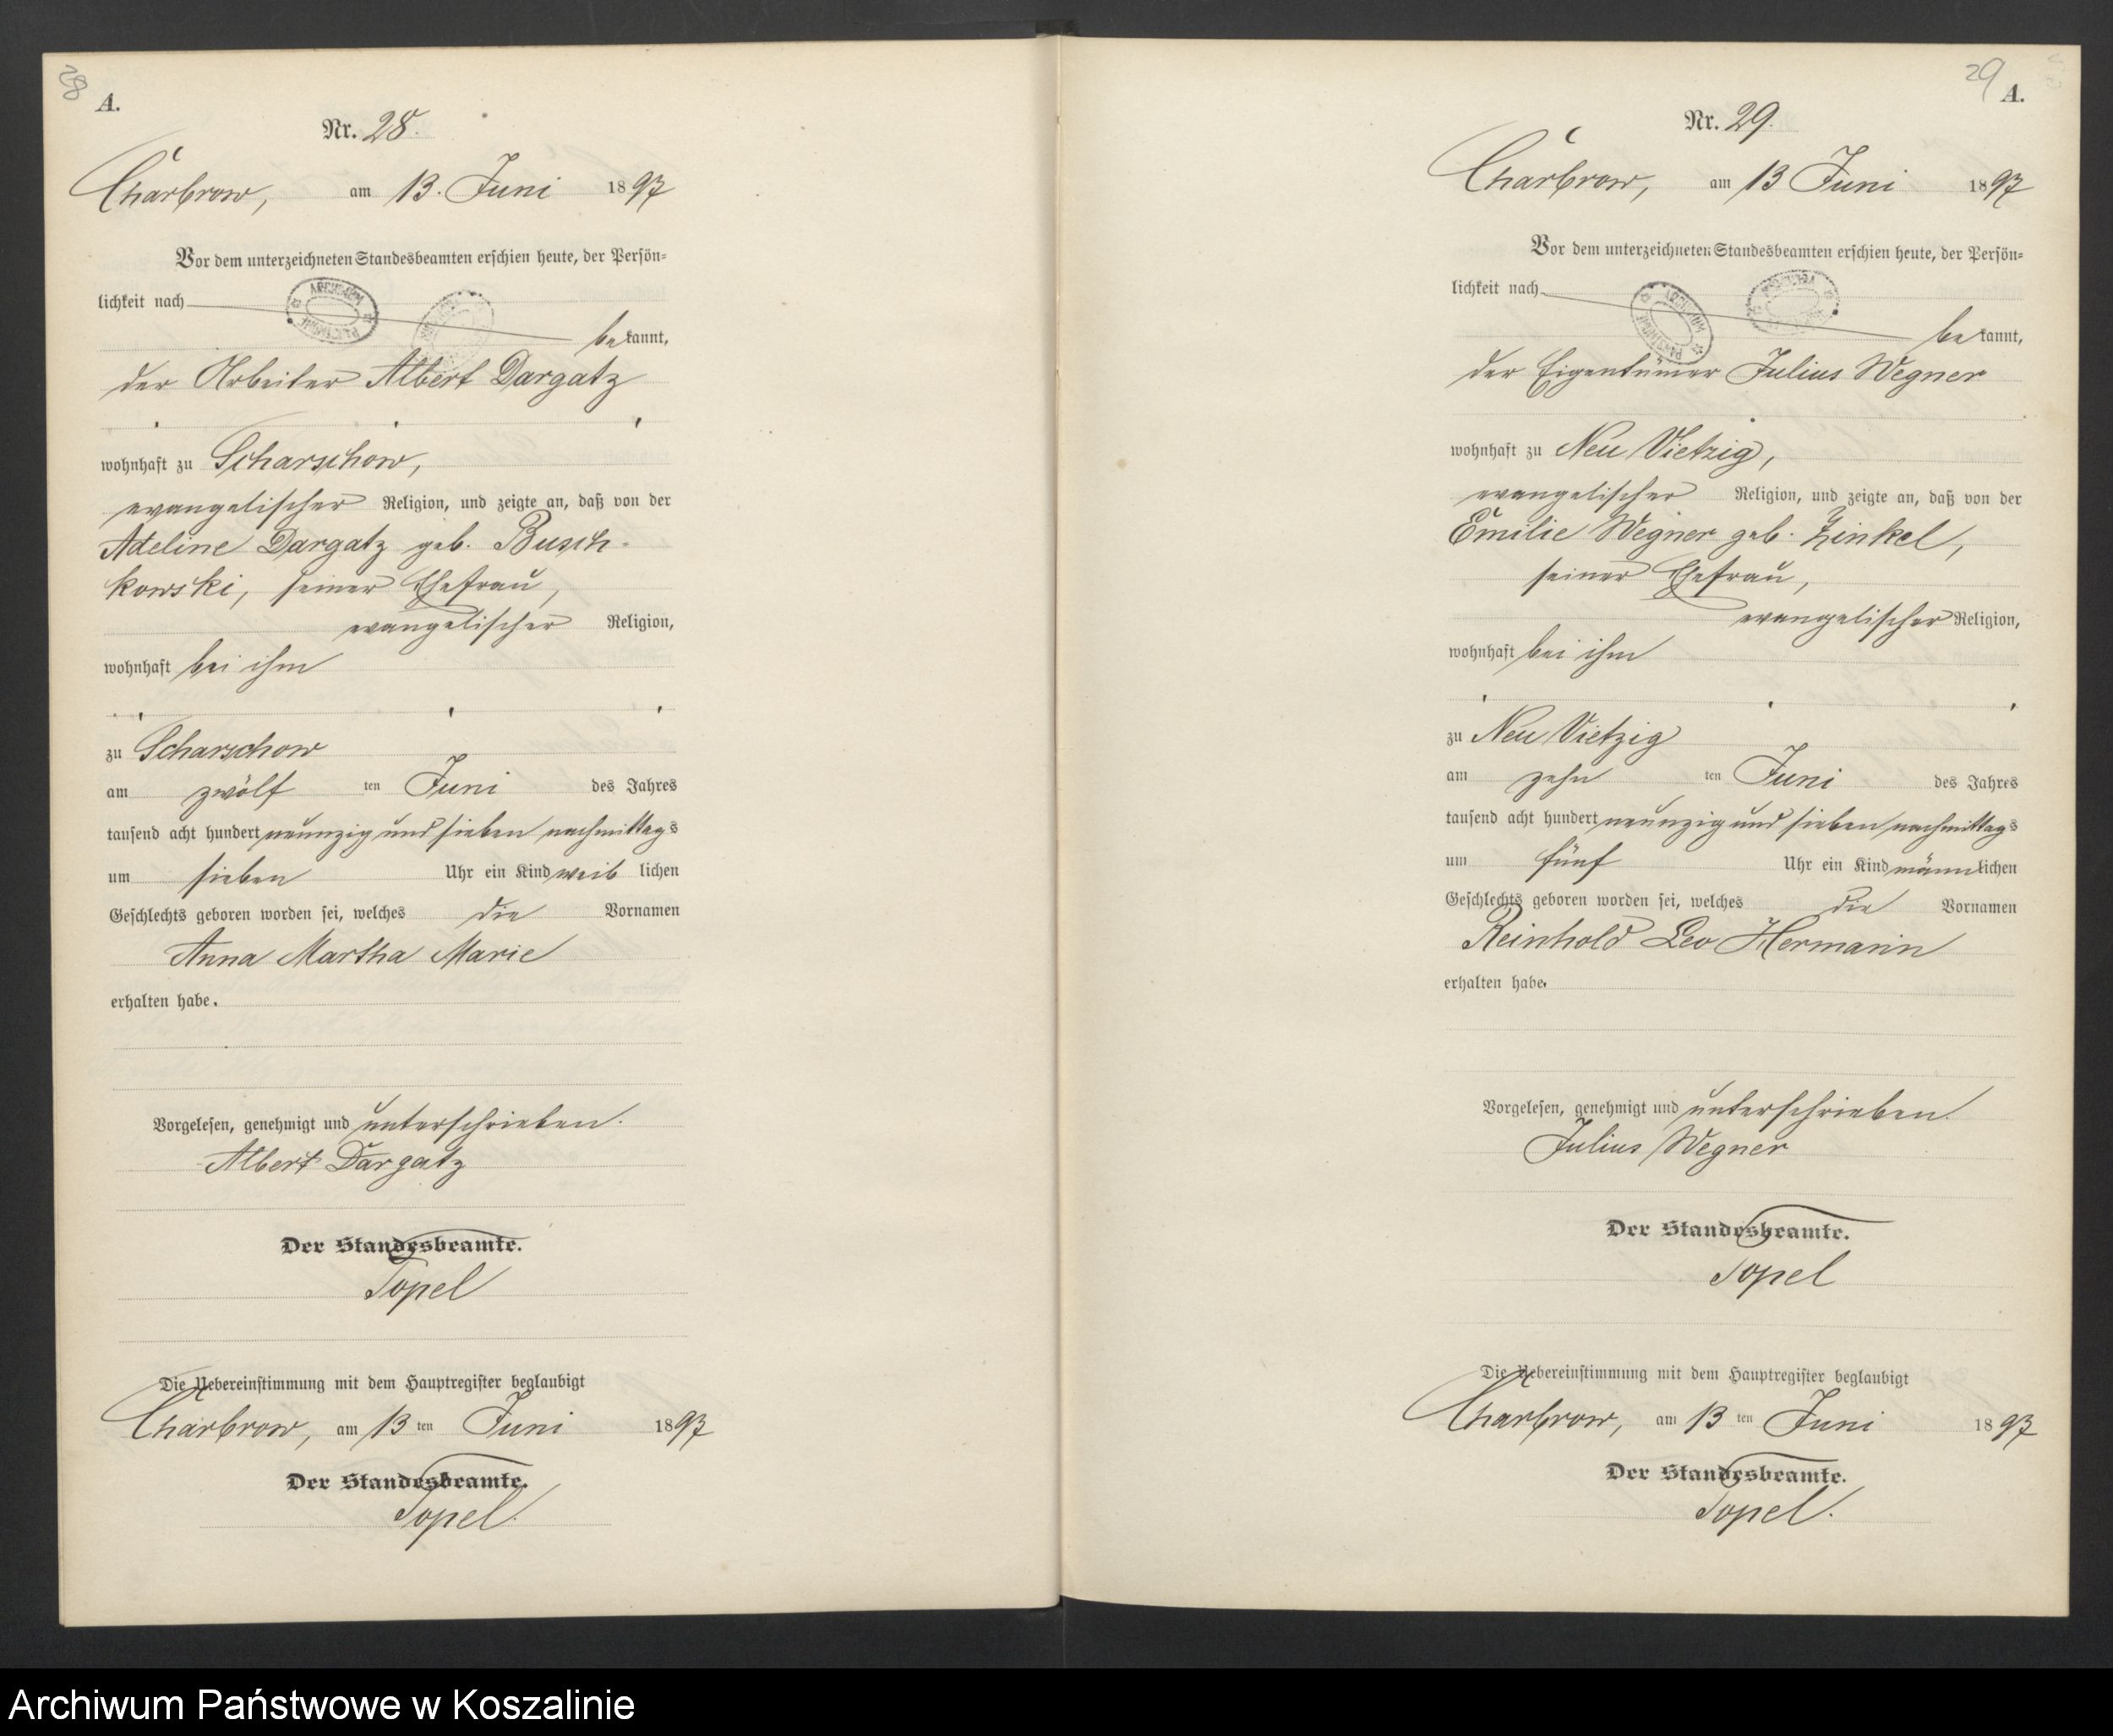 28
A.
Nr. 28.
Charbrow, am 13. Juni 1897
Vor dem unterzeichneten Standesbeamten erschien heute, der Persön-
lichkeit nach
bekannt,
der Arbeiter Albert Dargatz
wohnhaft zu Scharschow,
evangelischer Religion, und zeigte an, daß von der
Adeline Dargatz geb. Busch-
kowski, seiner Ehefrau,
evangelischer Religion,
wohnhaft bei ihm
zu Scharschow
am zwölf ten Juni des Jahres
tausend acht hundert neunzig und sieben nachmittags
um sieben Uhr ein Kind weiblichen
Geschlechts geboren worden sei, welches die Vornamen
Anna Martha Marie
erhalten habe.
Vorgelesen, genehmigt und unterschrieben.
Albert Dargatz
Der Standesbeamte.
Topel
Die Uebereinstimmung mit dem Hauptregister beglaubigt
Charbrow, am 13 ten Juni 1897
Der Standesbeamte.
Topel.
29
A.
Nr. 29.
Charbrow, am 13 Juni 1897
Vor dem unterzeichneten Standesbeamten erschien heute, der Persön-
lichkeit nach
bekannt,
der Eigentümer Julius Wegner
wohnhaft zu Neu Vietzig,
evangelischer Religion, und zeigte an, daß von der
Emilie Wegner geb. Zinkel,
seiner Ehefrau,
evangelischer Religion,
wohnhaft bei ihm
zu Neu Vietzig
am zehn ten Juni des Jahres
tausend acht hundert neunzig und sieben nachmittags
um fünf Uhr ein Kind männlichen
Geschlechts geboren worden sei, welches die Vornamen
Reinhold Leo Hermann
erhalten habe.
Vorgelesen, genehmigt und unterschrieben.
Julius Wegner
Der Standesbeamte.
Topel
Die Uebereinstimmung mit dem Hauptregister beglaubigt
Charbrow, am 13 ten Juni 1897
Der Standesbeamte.
Topel.
Archiwum Państwowe w Koszalinie